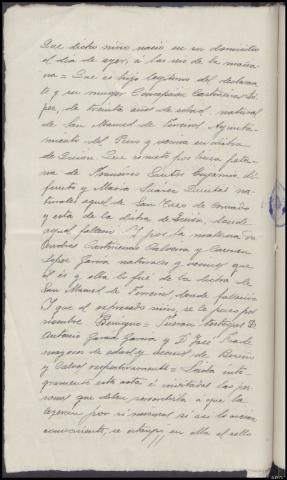 Que dicho niño nació en su domicilio
el día de ayer, á las seis de la maña-
na = Que es hijo legítimo del declaran-
te y su mujer Concepción Castiñeira Ló-
pez, de treinta años de edad, natural
de San Manuel de Ayunta-
miento del Pino y vecina en dicha
de Que es nieto por línea pater-
na de Francisco Eugenio, di-
funto y María Suárez na-
turales aquel de San de
y esta de la dicha de donde
aquel falleció. Y por la materna de
Andrés Castiñeiras y Carmen
López García naturales y vecinos que
él és y ella lo fué de la dicha de
San Manuel de donde falleció
Y que al expresado niño, se le puso por
nombre Benigno = Fueron testigos D.
Antonio García García y D. José
mayores de edad y vecinos de
y respectivamente = Leída inte-
gramente esta acta é invitadas las per-
sonas que deben suscribirla á que la
leyeran por sí mismas si así lo creían
conveniente, se estampó en ella el sello